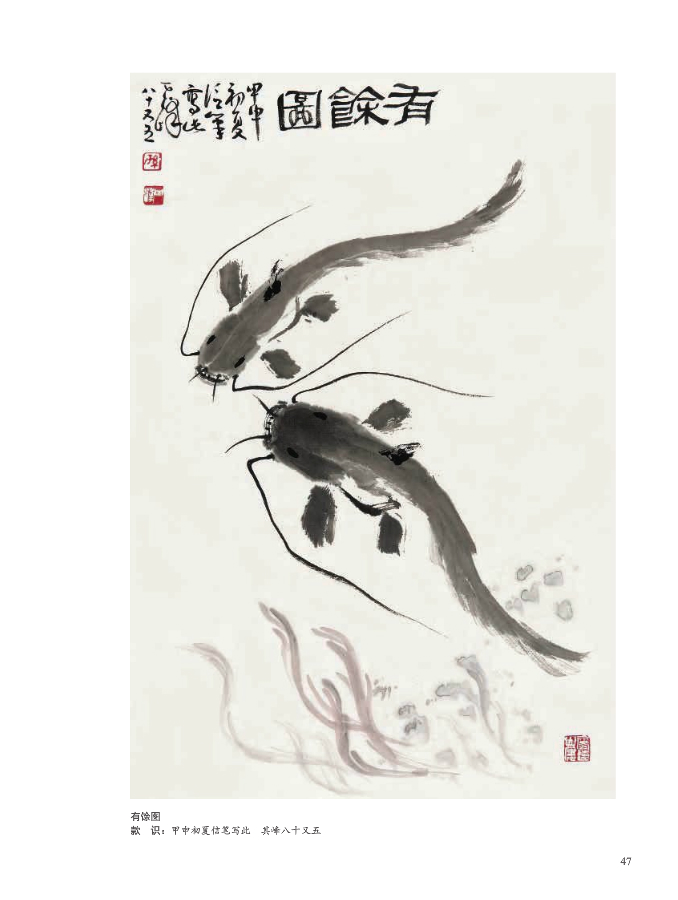 有餘圖
甲申
初夏
信筆
寫此
英峰
八十又五
有馀图
款　识：甲申初夏信笔写此　英峰八十又五
47